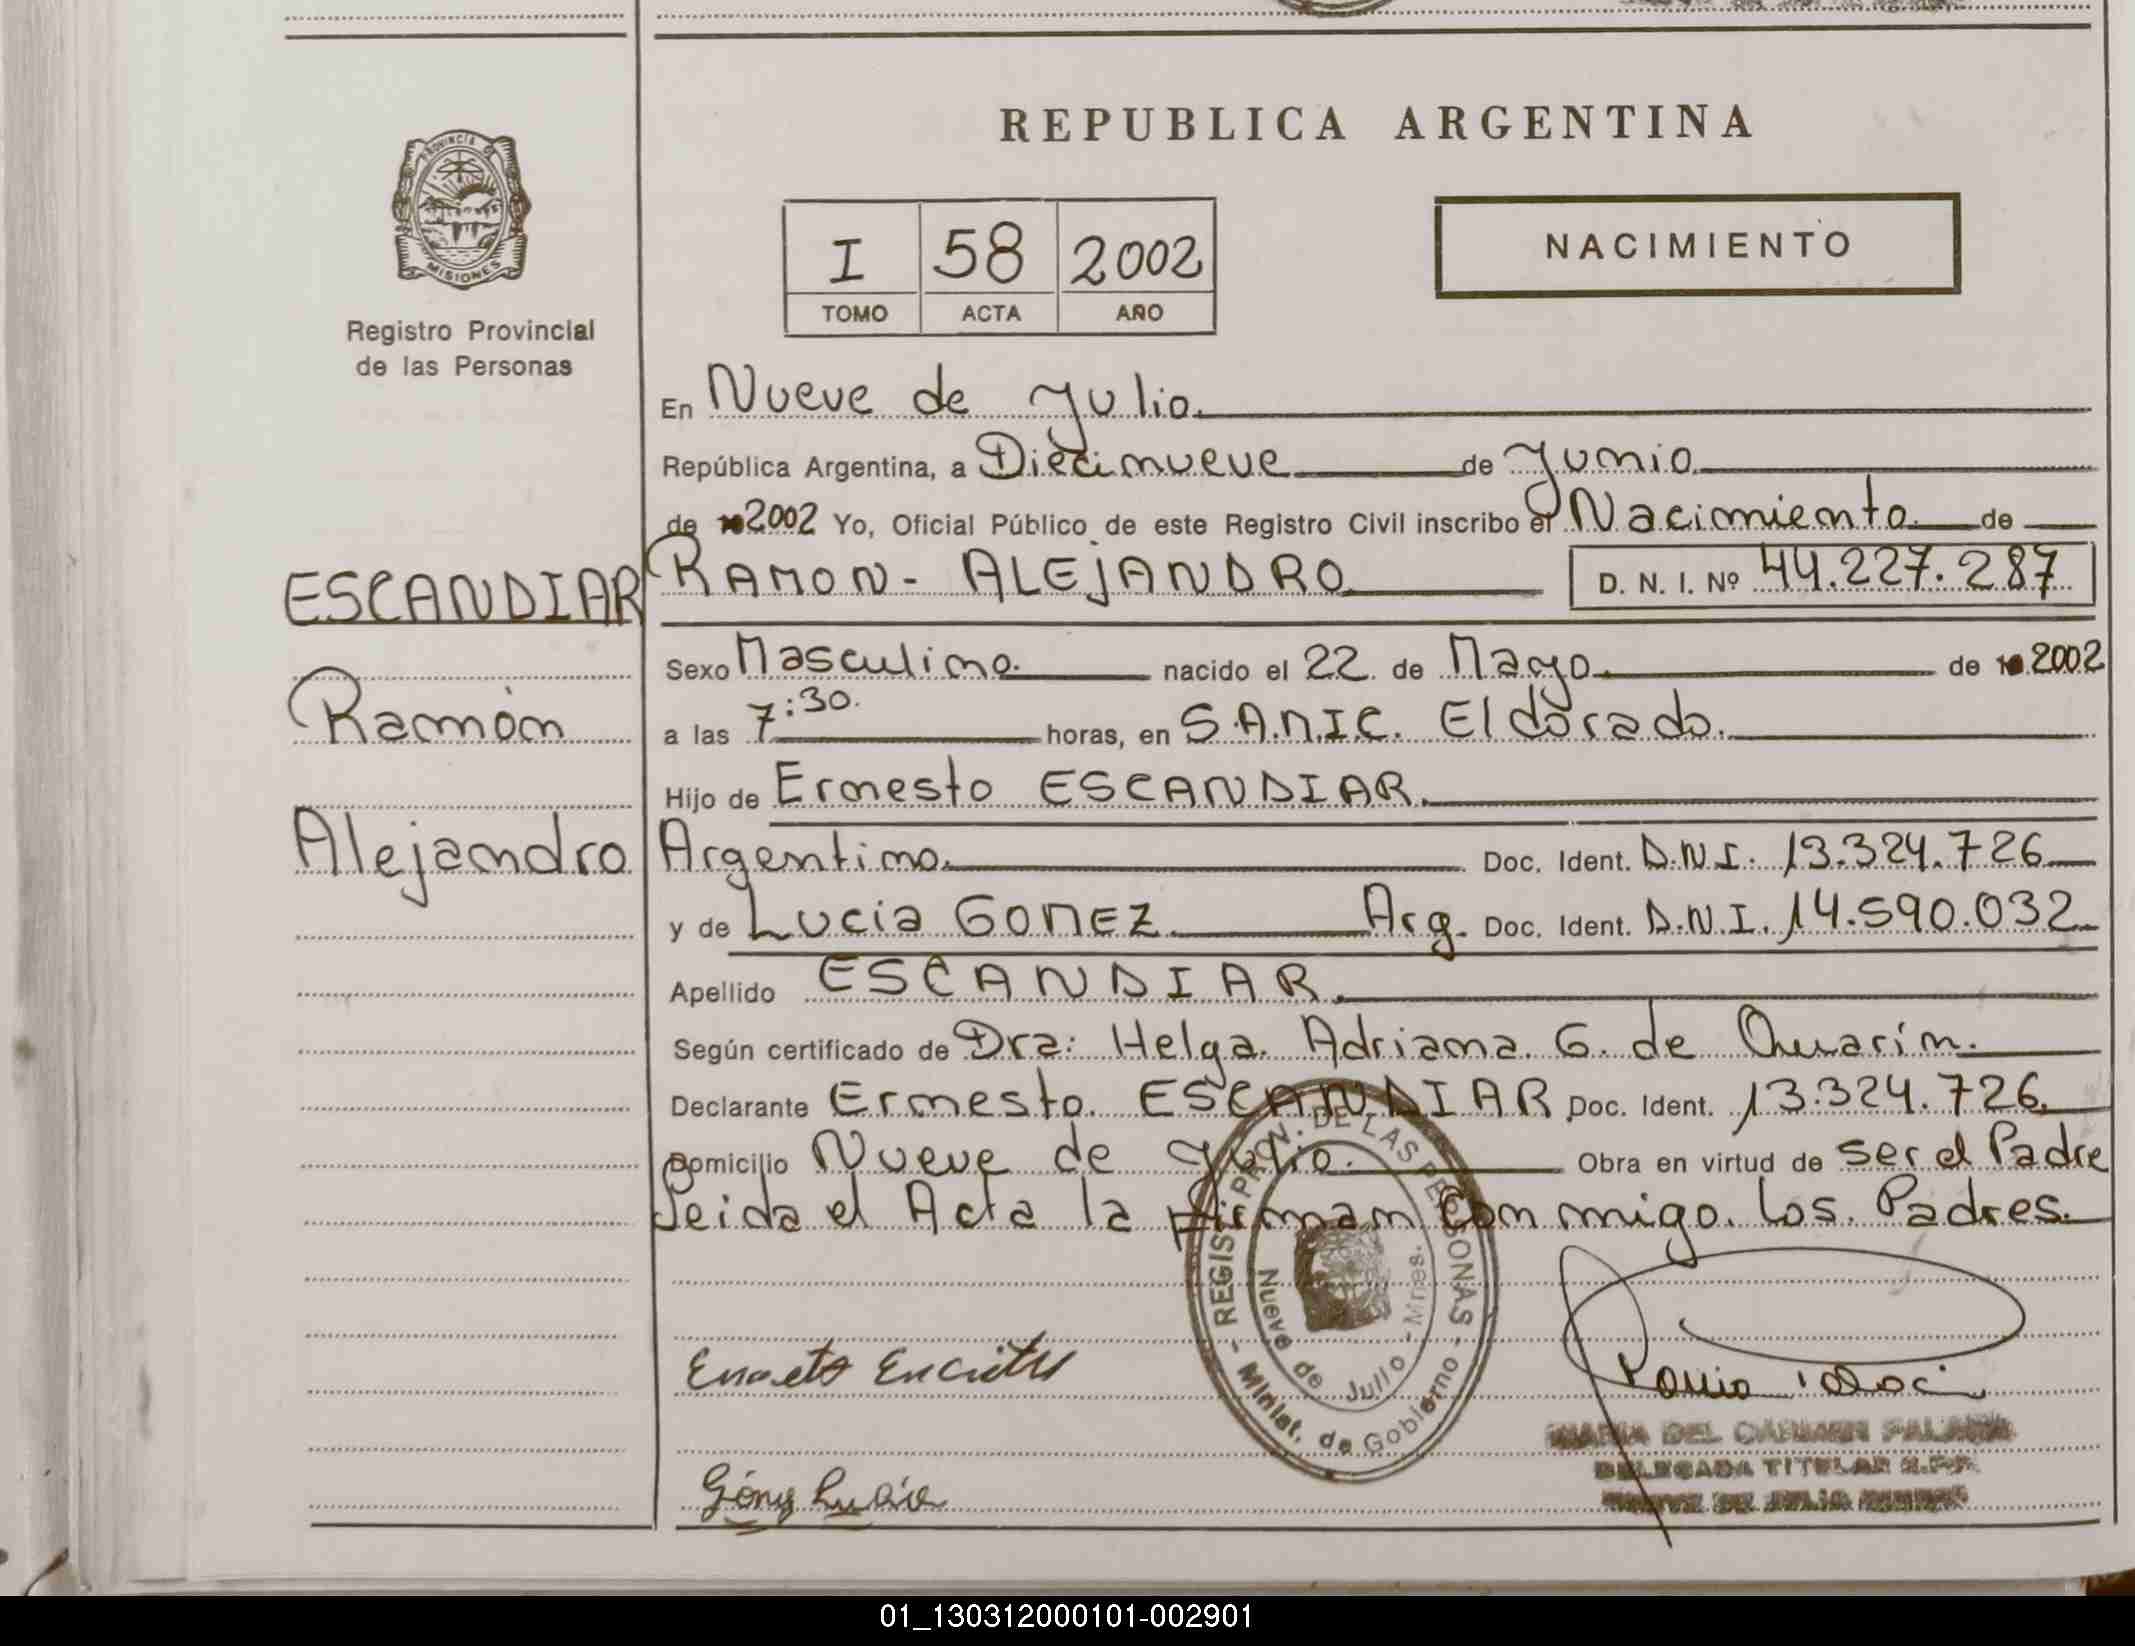 REPUBLICA ARGENTINA
PROVINCIA DE MISIONES
Registro Provincial
de las Personas
I 58 2002
TOMO ACTA AÑO
NACIMIENTO
En Nueve de Julio.
República Argentina, a Diecinueve de Junio
de 2002 Yo, Oficial Público de este Registro Civil inscribo el Nacimiento de
ESCANDIAR
Ramón
Alejandro
RAMON - ALEJANDRO D. N. I. Nº 44.227.287
Sexo Masculino. nacido el 22 de Mayo. de 2002
a las 7:30. horas, en S.A.M.I.C. Eldorado.
Hijo de Ernesto ESCANDIAR.
Argentino. Doc. Ident. D.N.I. 13.324.726
y de Lucia GOMEZ Arg. Doc. Ident. D.N.I. 14.590.032
Apellido ESCANDIAR.
Según certificado de Dra: Helga Adriana G. de
Declarante Ernesto ESCANDIAR Doc. Ident. 13.324.726.
Domicilio Nueve de Julio. Obra en virtud de ser el Padre
Leida el Acta la firman conmigo los Padres.
REGIST. PROV. DE LAS PERSONAS
Nueve de Julio - Mnes.
- Minist. de Gobierno -
MARIA DEL CARMEN
DELEGADA TITULAR R.P.P.
NUEVE DE JULIO
01_130312000101-002901